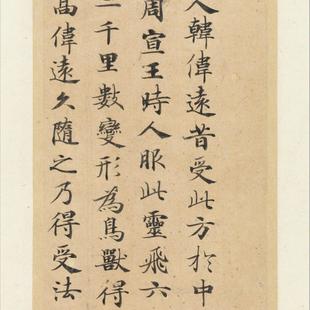 人韓偉遠昔受此方於中
周宣王時人服此靈飛六
一千里數變形為鳥獸得
高偉遠久隨之乃得受法